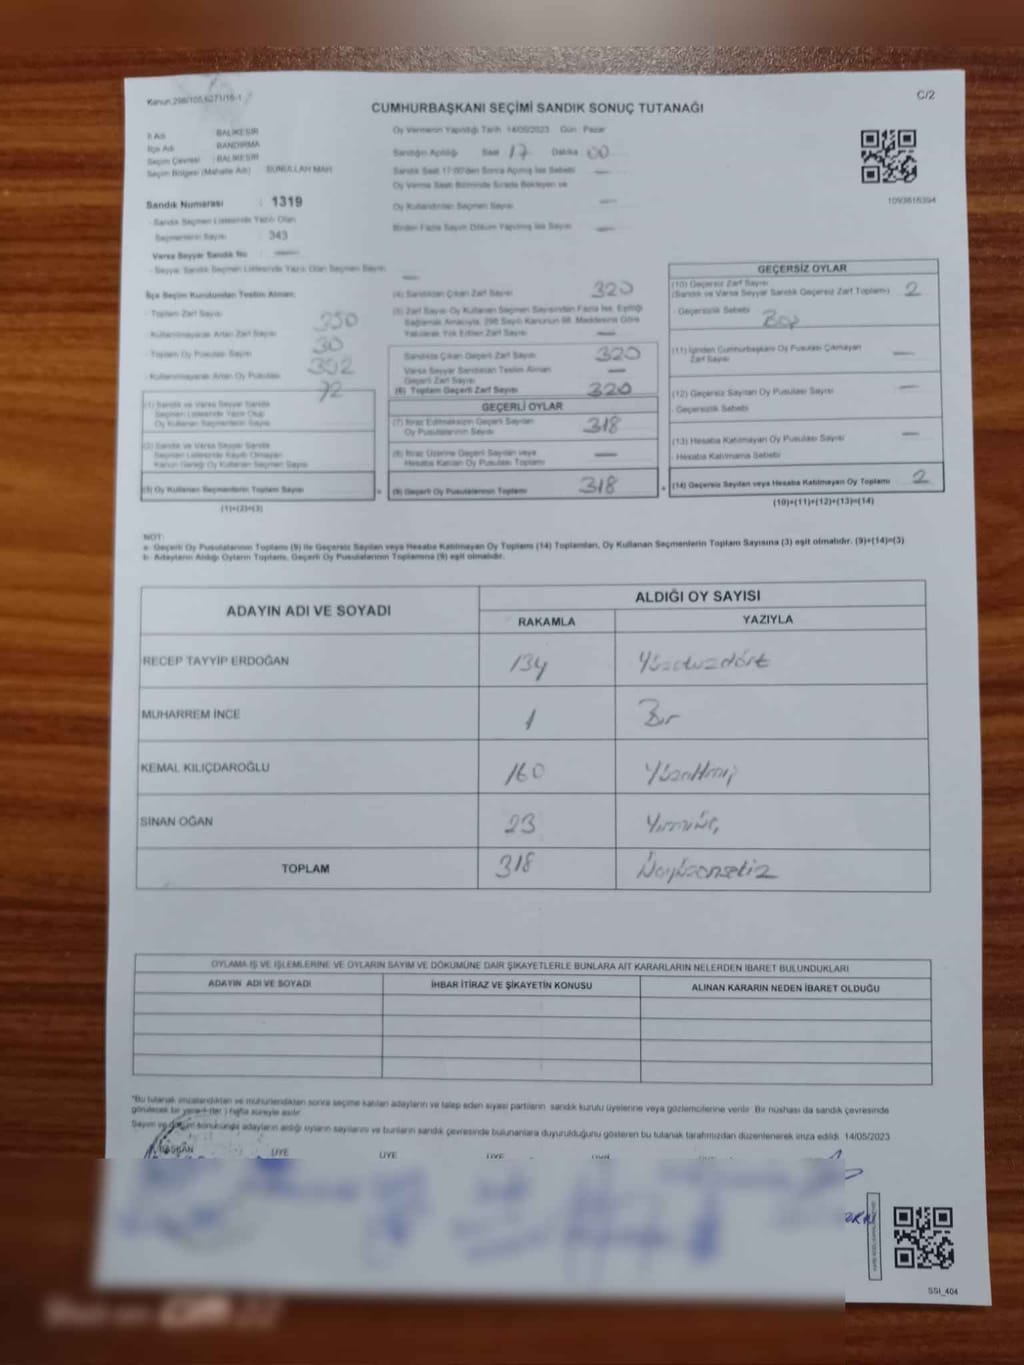 Kanun:298/105,6271/16-1
C/2
CUMHURBAŞKANI SEÇİMİ SANDIK SONUÇ TUTANAĞI
İl Adı : BALIKESİR
İlçe Adı : BANDIRMA
Seçim Çevresi : BALIKESİR
Seçim Bölgesi (Mahalle Adı) : SUNULLAH MAH
Sandık Numarası : 1319
- Sandık Seçmen Listesinde Yazılı Olan
Seçmenlerin Sayısı : 343
Varsa Seyyar Sandık No : —
- Seyyar Sandık Seçmen Listesinde Yazılı Olan Seçmen Sayısı —
Oy Vermenin Yapıldığı Tarih 14/05/2023 Gün : Pazar
Sandığın Açılışı Saat 17 Dakika 00
Sandık Saat 17:00'den Sonra Açılmış İse Sebebi —
Oy Verme Saati Bitiminde Sırada Bekleyen ve
Oy Kullandırılan Seçmen Sayısı —
Birden Fazla Sayım Döküm Yapılmış İse Sayısı —
1093616394
İlçe Seçim Kurulundan Teslim Alınan;
- Toplam Zarf Sayısı 350
- Kullanılmayarak Artan Zarf Sayısı 30
- Toplam Oy Pusulası Sayısı 392
- Kullanılmayarak Artan Oy Pusulası 72
(1) Sandık ve Varsa Seyyar Sandık
Seçmen Listesinde Yazılı Olup
Oy Kullanan Seçmenlerin Sayısı
(2) Sandık ve Varsa Seyyar Sandık
Seçmen Listesinde Kayıtlı Olmayan
Kanun Gereği Oy Kullanan Seçmen Sayısı
(3) Oy Kullanan Seçmenlerin Toplam Sayısı
(1)+(2)=(3)
(4) Sandıktan Çıkan Zarf Sayısı 320
(5) Zarf Sayısı Oy Kullanan Seçmen Sayısından Fazla İse, Eşitliği
Sağlamak Amacıyla, 298 Sayılı Kanunun 98. Maddesine Göre
Yakılarak Yok Edilen Zarf Sayısı —
Sandıkta Çıkan Geçerli Zarf Sayısı 320
Varsa Seyyar Sandıktan Teslim Alınan
Geçerli Zarf Sayısı —
(6) Toplam Geçerli Zarf Sayısı 320
GEÇERLİ OYLAR
(7) İtiraz Edilmeksizin Geçerli Sayılan
Oy Pusulalarının Sayısı 318
(8) İtiraz Üzerine Geçerli Sayılan veya
Hesaba Katılan Oy Pusulası Toplamı —
= (9) Geçerli Oy Pusulalarının Toplamı 318
GEÇERSİZ OYLAR
(10) Geçersiz Zarf Sayısı
(Sandık ve Varsa Seyyar Sandık Geçersiz Zarf Toplamı) 2
- Geçersizlik Sebebi Boş
(11) İçinden Cumhurbaşkanı Oy Pusulası Çıkmayan
Zarf Sayısı —
(12) Geçersiz Sayılan Oy Pusulası Sayısı —
- Geçersizlik Sebebi
(13) Hesaba Katılmayan Oy Pusulası Sayısı —
- Hesaba Katılmama Sebebi
+ (14) Geçersiz Sayılan veya Hesaba Katılmayan Oy Toplamı 2
(10)+(11)+(12)+(13)=(14)
NOT:
a- Geçerli Oy Pusulalarının Toplamı (9) ile Geçersiz Sayılan veya Hesaba Katılmayan Oy Toplamı (14) Toplamları, Oy Kullanan Seçmenlerin Toplam Sayısına (3) eşit olmalıdır. (9)+(14)=(3)
b- Adayların Aldığı Oyların Toplamı, Geçerli Oy Pusulalarının Toplamına (9) eşit olmalıdır.
ADAYIN ADI VE SOYADI
ALDIĞI OY SAYISI
RAKAMLA YAZIYLA
RECEP TAYYİP ERDOĞAN 134 Yüzotuzdört
MUHARREM İNCE 1 Bir
KEMAL KILIÇDAROĞLU 160 Yüzaltmış
SİNAN OĞAN 23 Yirmiüç
TOPLAM 318 Üçyüzonsekiz
OYLAMA İŞ VE İŞLEMLERİNE VE OYLARIN SAYIM VE DÖKÜMÜNE DAİR ŞİKAYETLERLE BUNLARA AİT KARARLARIN NELERDEN İBARET BULUNDUKLARI
ADAYIN ADI VE SOYADI İHBAR İTİRAZ VE ŞİKAYETİN KONUSU ALINAN KARARIN NEDEN İBARET OLDUĞU
*Bu tutanak imzalandıktan ve mühürlendikten sonra seçime katılan adayların ve talep eden siyasi partilerin sandık kurulu üyelerine veya gözlemcilerine verilir. Bir nüshası da sandık çevresinde
görülecek bir yere 1 (bir) hafta süreyle asılır.
Sayım ve döküm sonucunda adayların aldığı oyların sayılarını ve bunların sandık çevresinde bulunanlara duyurulduğunu gösteren bu tutanak tarafımızdan düzenlenerek imza edildi. 14/05/2023
BAŞKAN ÜYE ÜYE
SSI_404